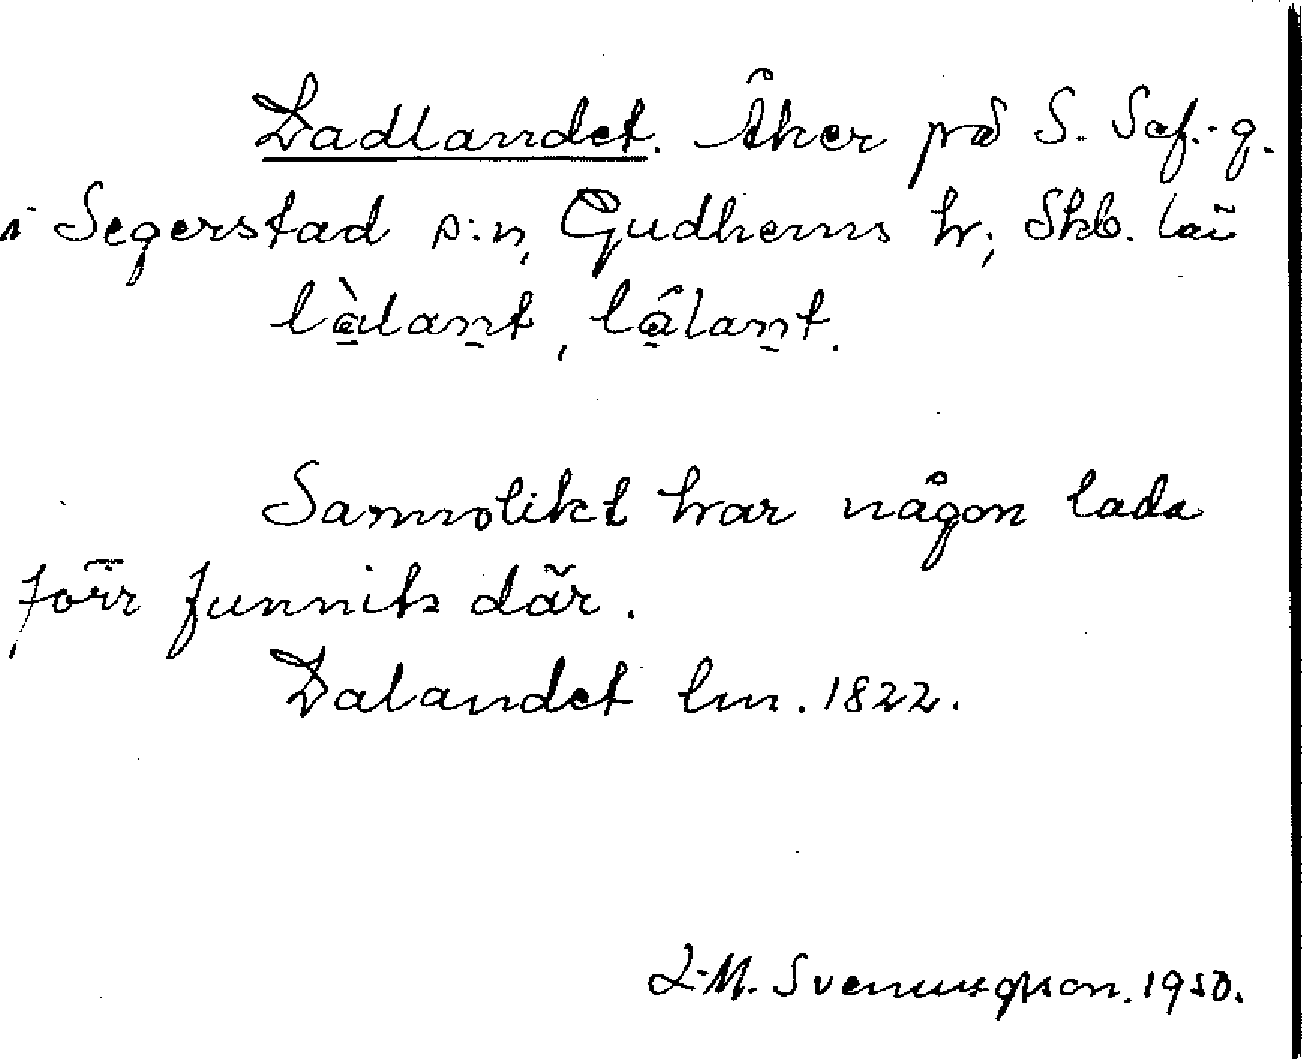 Ladlandet. Åker på S. Saf.-g.
i Segerstad s:n, Gudhems hr, Skb. län
là̱lan̠t, lâ̱lan̠t.
Sannolikt har någon lada
förr funnits där.
Lalandet lm. 1822.
L-M. Svenungsson. 1950.